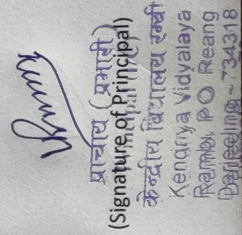 प्राचार्य (प्रभारी)
(Signature of Principal)
केन्द्रीय विद्यालय रम्बी
Kendriya Vidyalaya
Rambi, PO Reang
Darjeeling - 734318